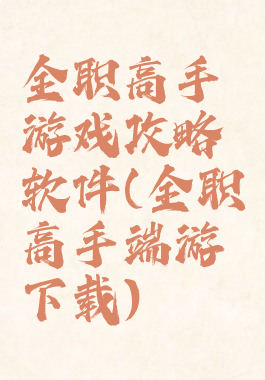 全职高手
游戏攻略
软件(全职
高手端游
下载)